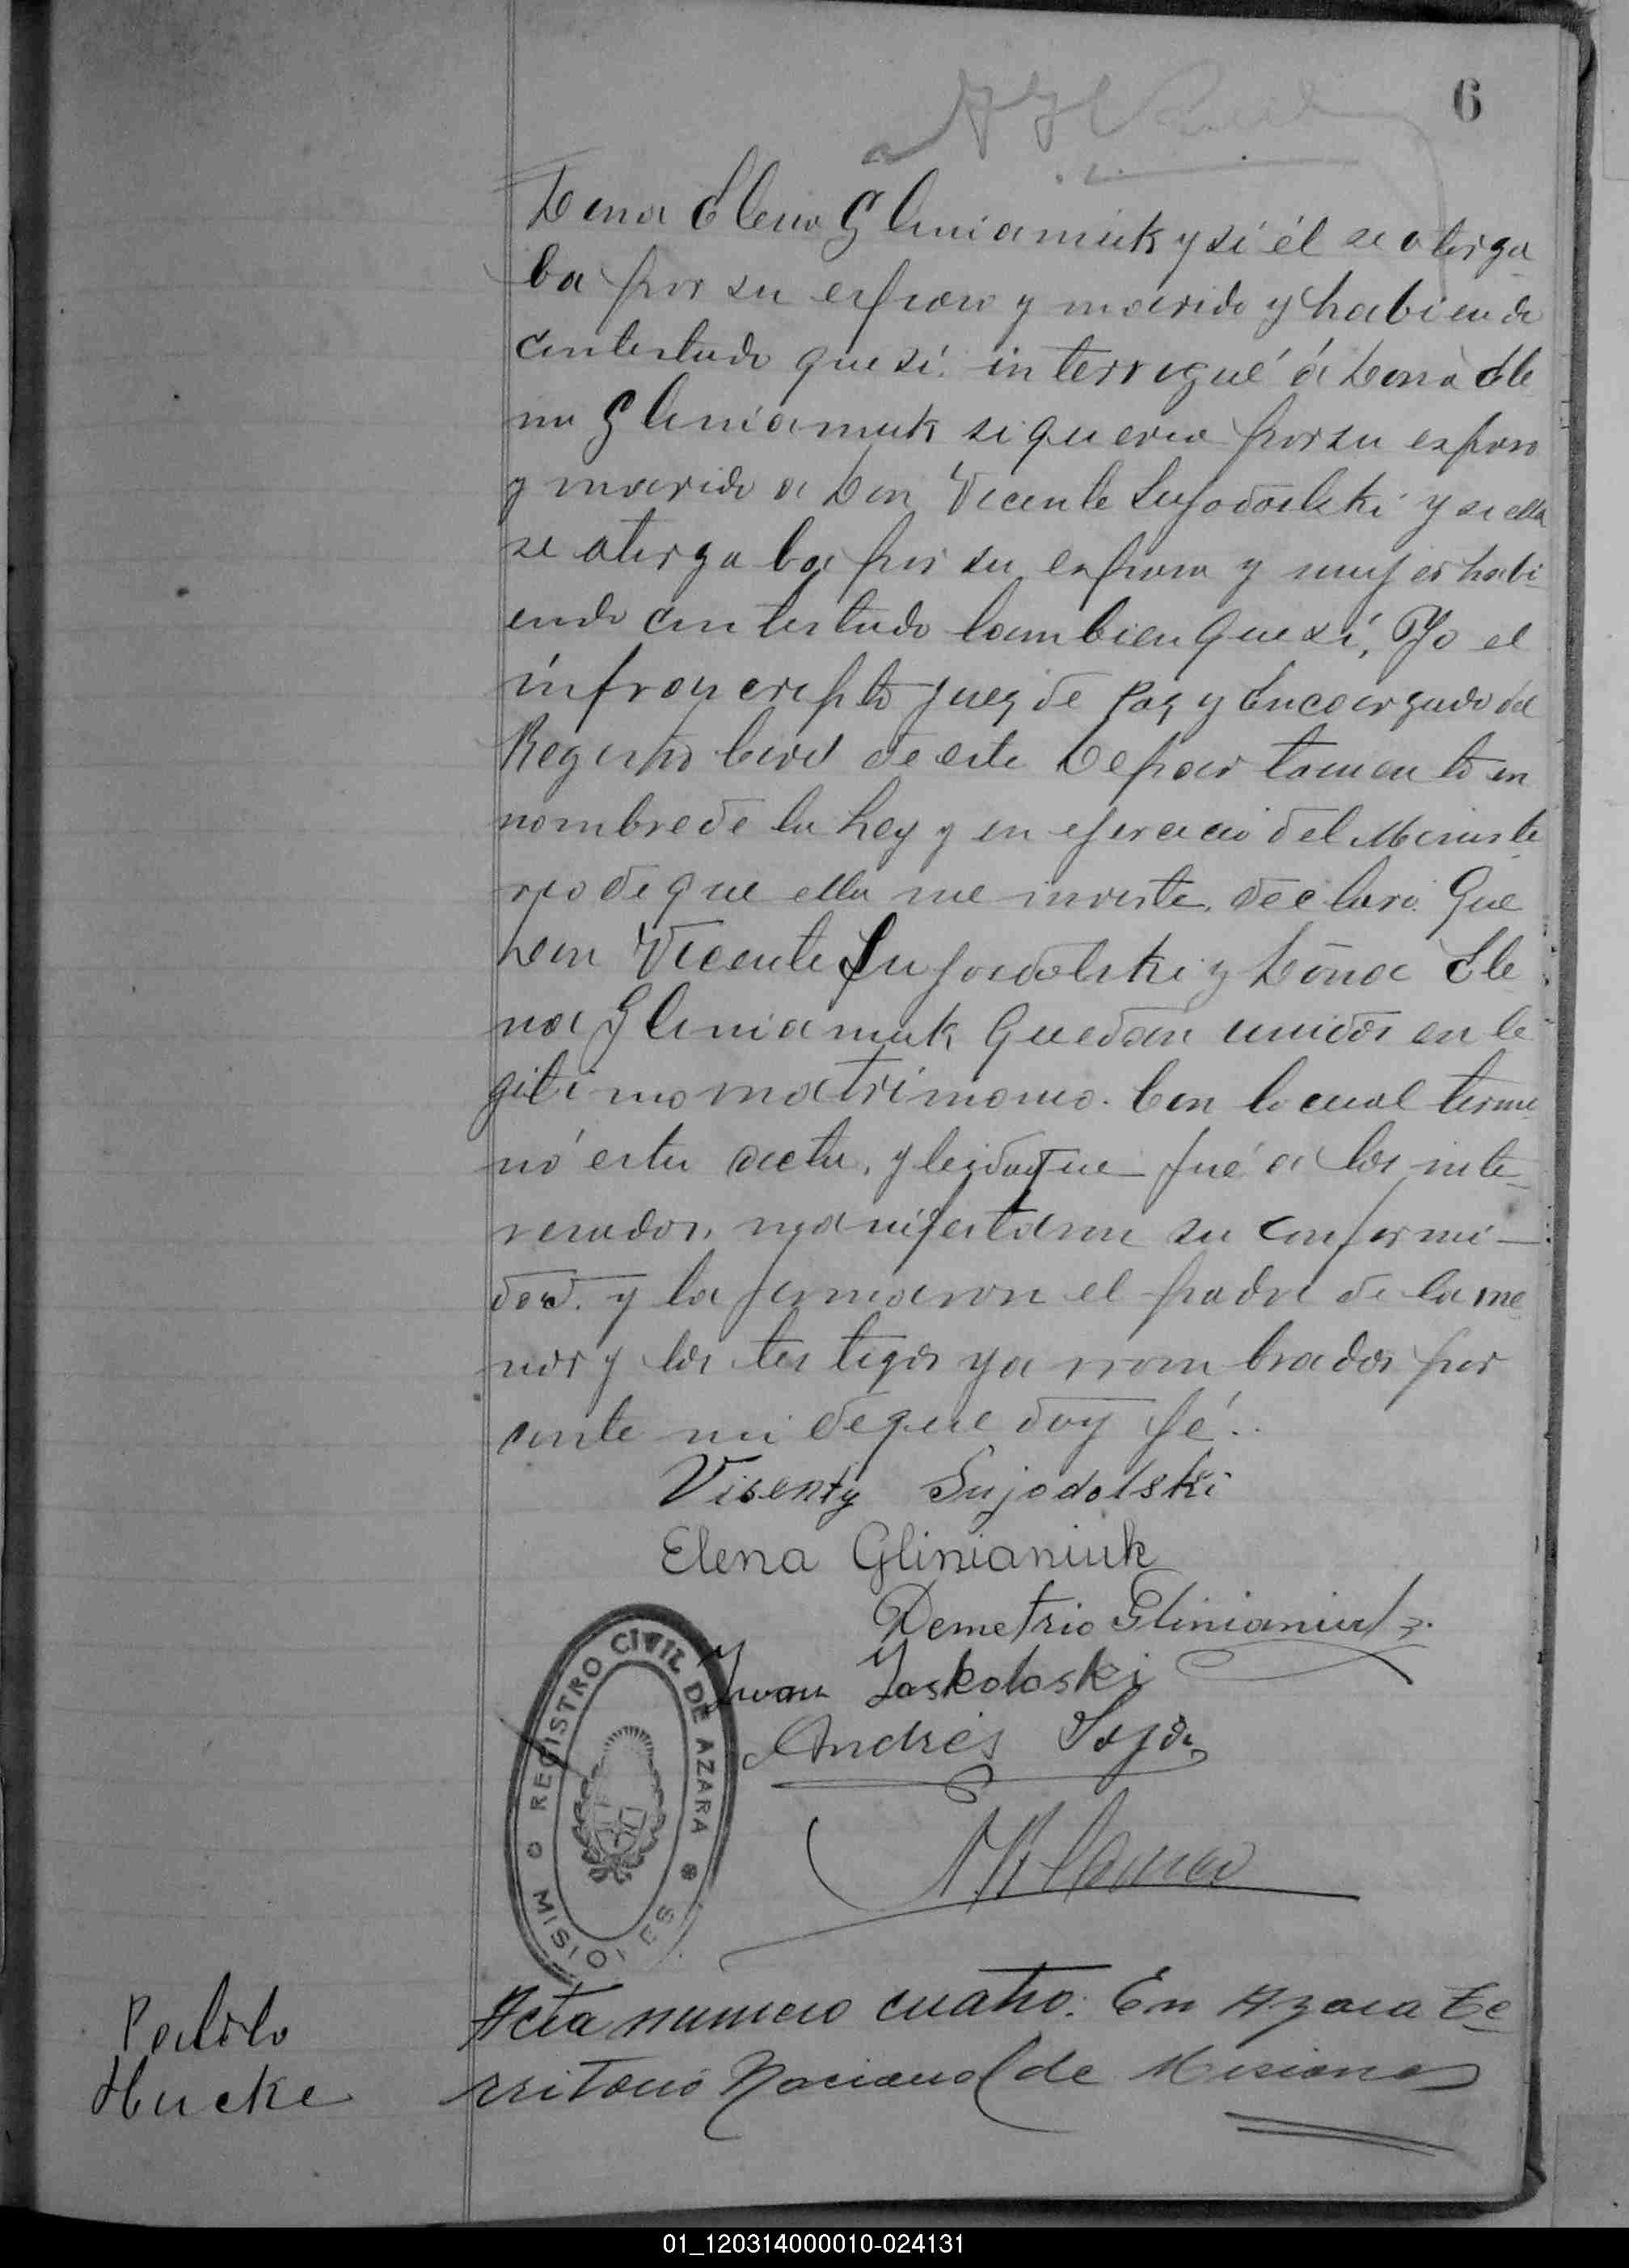 6
Dona Elena Glinianiuk y si él se otorga
ba por su esposo y marido y habiendo
contestado que sí: interrogué á Dona Ele
na Glinianiuk si queria por su esposo
y marido a Don Vicente Sujodolski y si ella
se otorgaba por su esposa y mujer habi-
endo contestado tambien que sí, Yo el
infrascripto Juez de Paz y Encargado del
Registro Civil de este Departamento en
nombre de la Ley y en ejercicio del Ministe
rio de que ella me inviste, declaro. Que
Don Vicente Sujodolski y Doña Ele
na Glinianiuk quedan unidos en le
gitimo matrimonio. Con lo cual termi
nó esta acta, y leida que fué a los inte-
resados, manifestaron su conformi-
dad. y la firmaron el padre de la me
nor y los testigos ya nombrados por
ante mi de que doy fé..
Visenty Sujodolski
Elena Glinianiuk
Demetrio Glinianiuk
Juan Jaskoloski
Andrés
REGISTRO CIVIL DE AZARA
MISIONES
Acta numero cuatro. En Azara Te
rritorio Nacional de Misiones
Pablo
Hucke
01_120314000010-024131